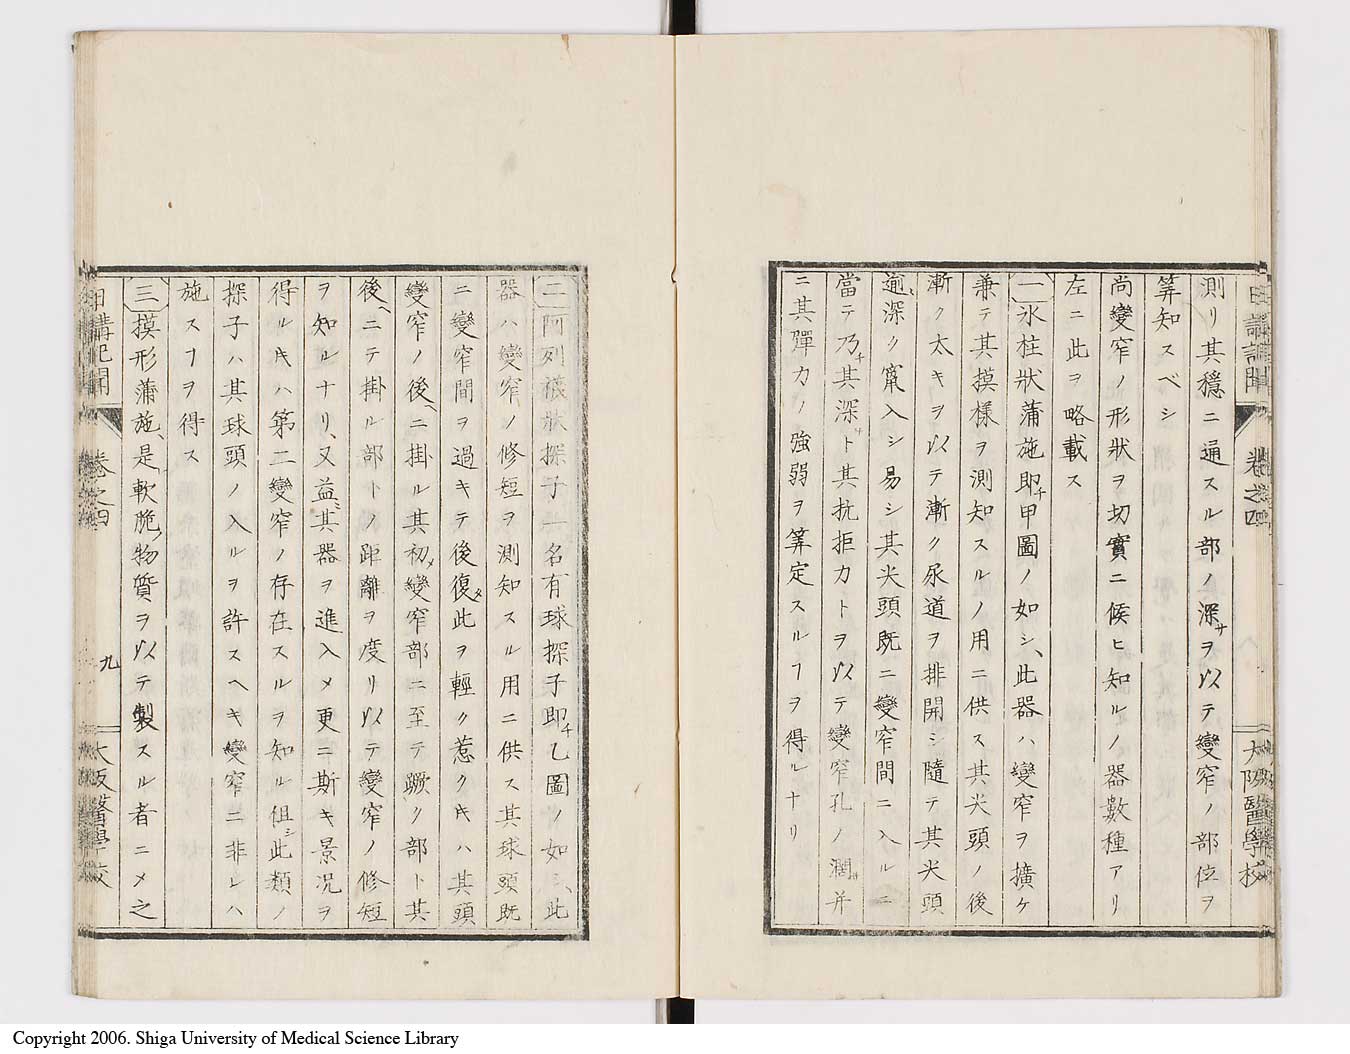 測リ其穩ニ通スル部ノ深サヲ以テ變窄ノ部位ヲ
筭知スベシ
尚變窄ノ形狀ヲ切實ニ候ヒ知ルノ器數種アリ
左ニ此ヲ略載ス
一 氷柱狀蒲施即チ甲圖ノ如シ、此器ハ變窄ヲ擴ケ
兼テ其摸樣ヲ測知スルノ用ニ供ス其尖頭ノ後
漸ク太キヲ以テ漸ク尿道ヲ排開シ隨テ其尖頭
逾深ク竄入シ易シ其尖頭既ニ變窄間ニ入ルニ
當テ乃チ其深サト其抗拒力トヲ以テ變窄孔ノ濶サ并
ニ其彈力ノ強弱ヲ筭定スルヿヲ得ルナリ
卷之四
大阪醫學校
二 阿列襪狀探子一名有球探子即チ乙圖ノ如シ、此
器ハ變窄ノ修短ヲ測知スル用ニ供ス其球頭既
ニ變窄間ヲ過キテ後復タ此ヲ輕ク惹クキハ其頭
變窄ノ後、ニ掛ル其初メ變窄部ニ至テ蹶ク部ト其
後、ニテ掛ル部トノ距離ヲ度リ以テ變窄ノ修短
ヲ知ルナリ、又益其器ヲ進入メ更ニ斯キ景况ヲ
得ルキハ第二變窄ノ存在スルヲ知ル徂シ此類ノ
探子ハ其球頭ノ入ルヲ許スヘキ變窄ニ非レハ
施スヿヲ得ス
三 摸形蒲施、是軟脆物質ヲ以テ製スル者ニメ之
日講記聞
卷之四
九
大阪醫學校